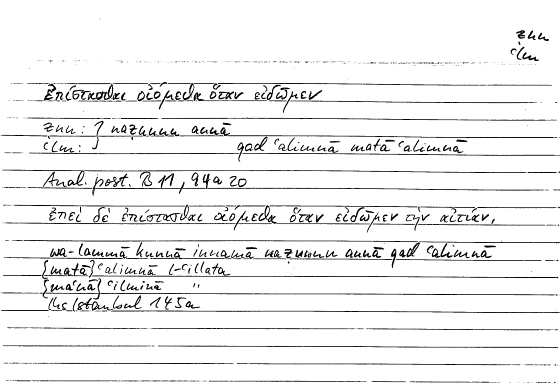 ẓnn
ʿlm
ἐπίστασθαι οἰόμεθα ὅταν εἰδῶμεν
ẓnn : } naẓunnu annā
ʿlm : qad ʿalimnā matā ʿalimnā
Anal. post. B 11, 94a20
ἐπεὶ δὲ ἐπίστασθαι οἰόμεθα ὅταν εἰδῶμεν τὴν αἰτίαν,
wa-lammā kunnā innamā naẓunnu annā qad ʿalimnā
{matā} ʿalimnā l-ʿillata
{maʿnā} ʿilminā "
Hs Istanbul 145a